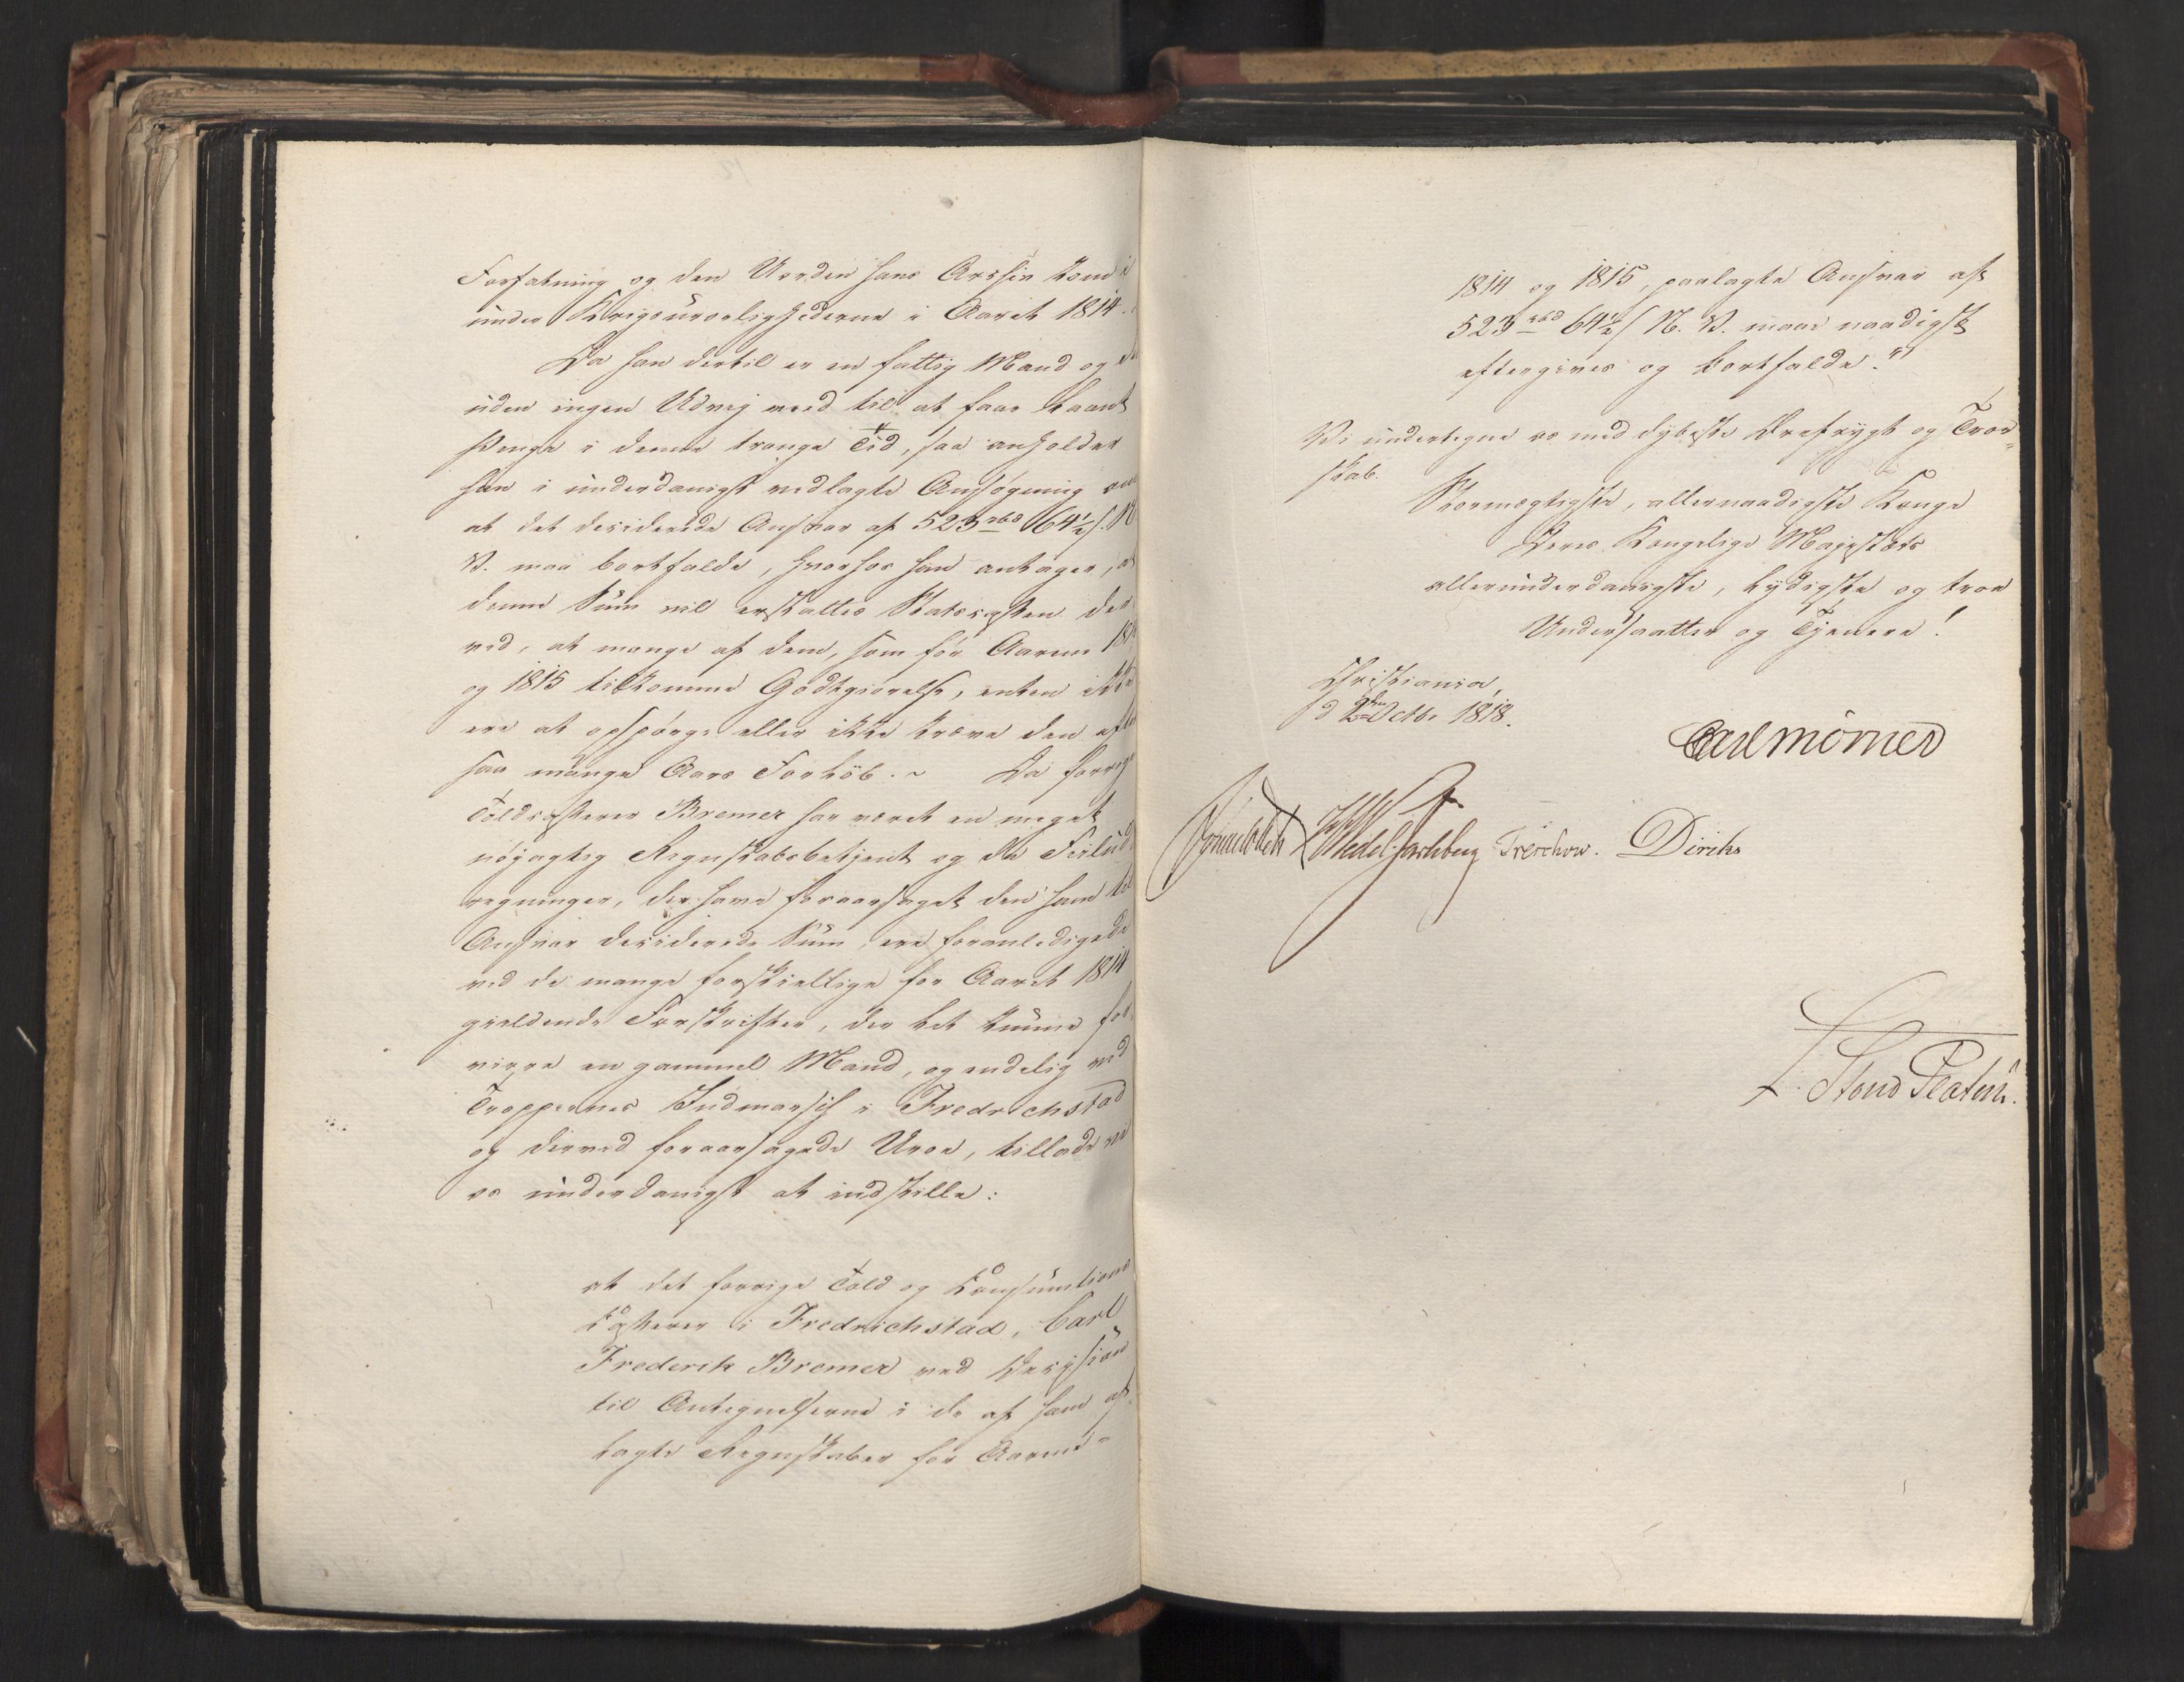 Forfatning og den Uorden hans Archiv kom i
under Krigsuroelighederne i Aaret 1814.
Da han dertil er en fattig Mand og
uden ingen Udvej veed til at faae laant
Penge i denne trange Tid, saa anholder
han i underdanigst vedlagte Ansøgning om
at det deciderede Ansvar af 523 rbd 64½ s. N.
V. maa bortfalde, hvorhos han antager, at
denne Sum vil erstattes Statscassen der
ved, at mange af dem, som for Aarene 1814
og 1815 tilkomme Godtgiørelse, enten ikke
ere at opspørge eller ikke kræve den efter
saa mange Aars Forløb. ~ Da forrige
Toldcasserer Bremer har været en meget
nøjagtig Regnskabsbetjent og da Fejlud
regninger, der have foraarsaget den ham til
Ansvar deciderede Sum, ere foranledigede
ved de mange forskiellige for Aaret 1814
gieldende Forskrifter, der let kunne for
virre en gammel Mand, og endelig ved
Troppernes Indmarsch i Fredrichstad
og derved foraarsagede Uroe, tillade vi
os underdanigst at indstille:
at det forrige Told og Consumtions
Casserer i Fredrichstad, Carl
Frederik Bremer ved Decision
til Antegnelserne i de af ham af
lagte Regnskaber for Aarene
1814 og 1815, paalagte Ansvar af
523 rbd 64½ s N. V. maae naadigst
eftergives og bortfalde."
Vi undertegne os med dybeste Ærefrygt og Troe-
skab.
Stormægtigste, allernaadigste Konge
Deres Kongelige Majestæts
allerunderdanigste, lydigste og troe
Undersaatter og Tjenere!
Christiania,
d 2den Octbr 1818.
Carl Mörner
Sommerhielm Wedel-Jarlsberg Treschow. Diriks
L. Stoud Platou.